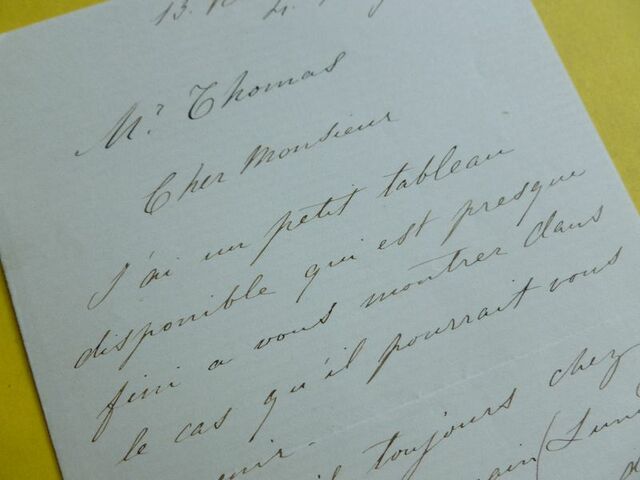 13.
Mr Thomas
Cher Monsieur
J'ai un petit tableau
disponible qui est presque
fini a vous montrer dans
le cas qu'il pourrait vous
toujours chez
(Lun